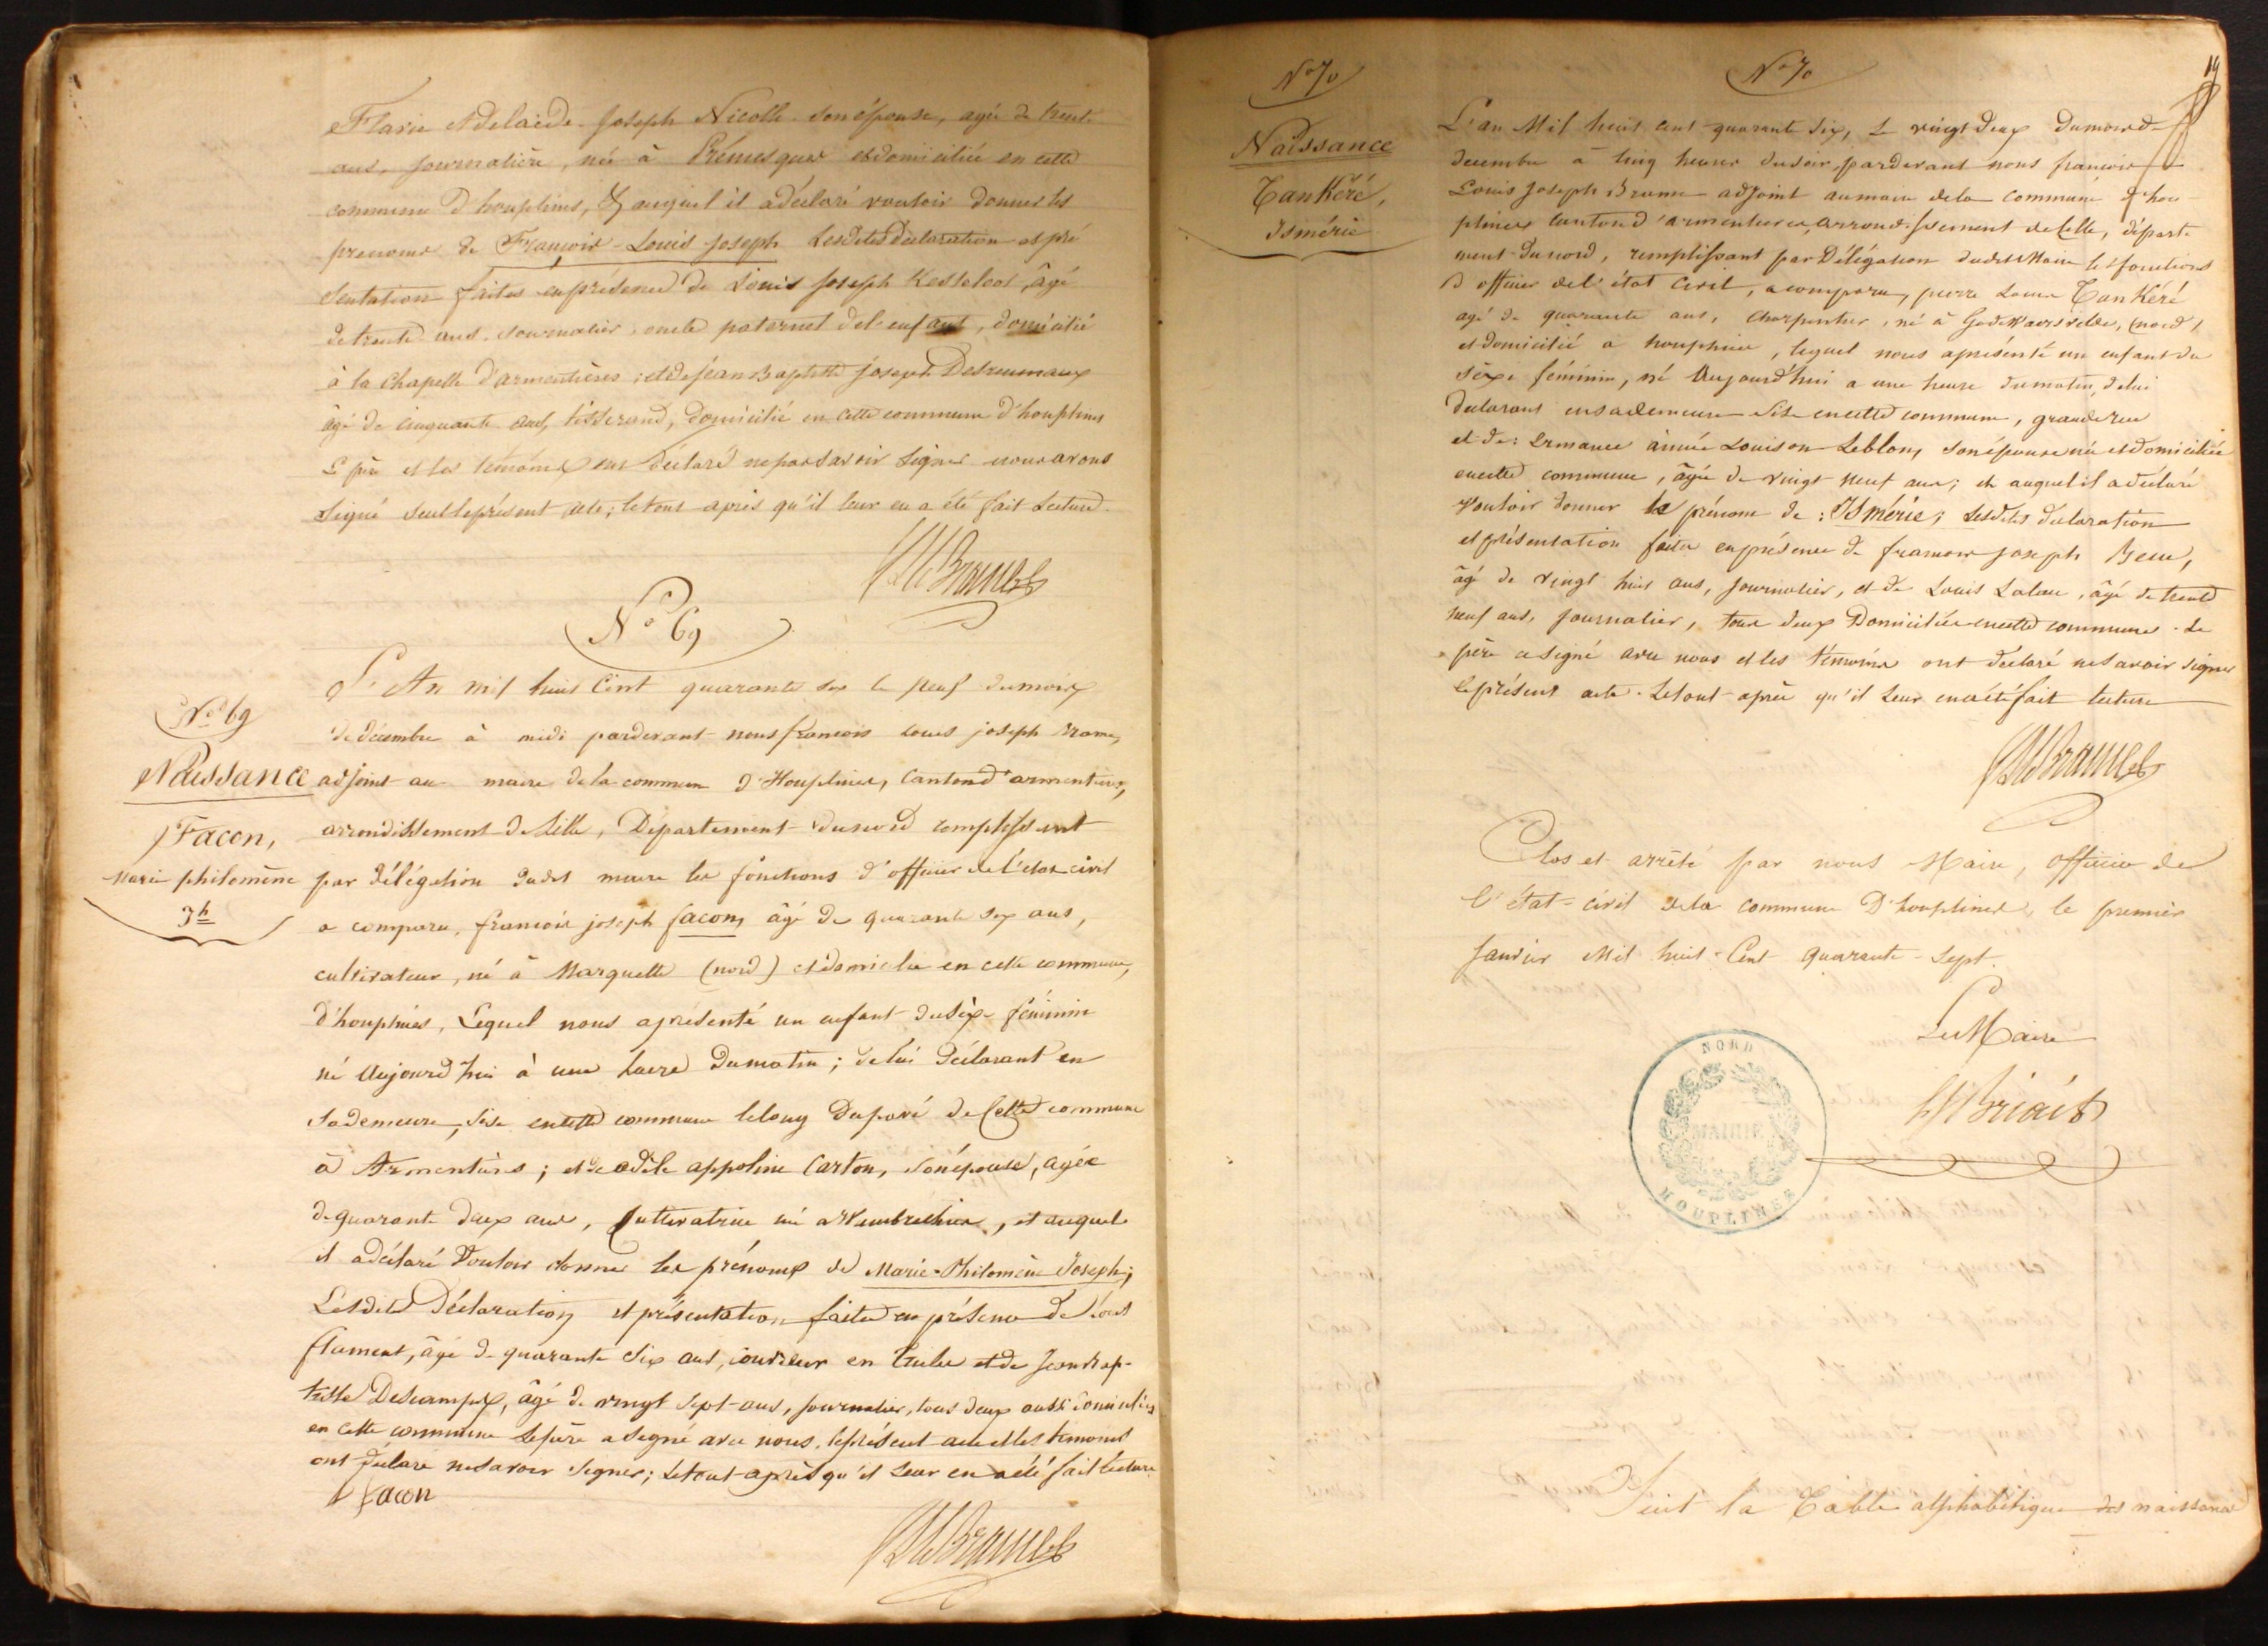 Flavie Adelaide Joseph Nicolle son épouse, agée de trente
ans, journalière, née à Prémesques et domiciliée en cette
commune d'houplines, & auquel il a déclaré vouloir donner les
prenoms de François-Louis Joseph Lesdites déclaration et pré
sentation faites en présence de Louis Joseph Kesteloot, âgé
de trente ans, journalier, oncle paternel de l'enfant, domicilié
à la Chapelle d'armentières ; et de Jean Baptiste Joseph Desreumaux
âgé de cinquante ans, tisserand, domicilié en cette commune d'houplines
Le père et les témoins ont déclaré ne pas savoir signer nous avons
signé seul le présent acte ; le tout après qu'il leur en a été fait lecture.
N° 69
N° 69
Naissance
Facon,
Marie philomène
Jh
L'An mil huit Cent quarante six le neuf du mois
de décembre à midi pardevant nous francois Louis joseph Brame,
adjoint au maire de la commune d'Houplines, Canton d'armentières,
arrondissement de Lille, Département du nord remplissant
par délégation dudit maire les fonctions d'officier de l'état civil
a comparu, francois joseph facon, âgé de quarante six ans,
cultivateur, né à Marquette (nord) et domicilié en cette commune,
d'houplines, Lequel nous a présenté un enfant du sèxe féminin
né Aujourd'hui à une heure du matin ; de lui déclarant en
sa demeure, sise en cette commune le long du pavé de Cette commune
à Armentières ; et de adèle appoline Carton, son épouse, agée
de quarante deux ans, Cultivatrice né a Wambrechies, et auquel
il a déclaré Vouloir donner les prénoms de Marie-Philomène Joseph ;
Lesdites Déclaration et présentation faites en présence de Louis
flament, âgé de quarante six ans, couvreur en tuiles et de Jean bap-
tiste Descamps, âgé de vingt sept ans, journalier, tous deux aussi domiciliés
en cette commune Le père a signé avec nous, le présent acte et les temoins
ont déclaré ne savoir signer ; Le tout après qu'il Leur en a été fait lecture.
f facon
N° 70
Naissance
TanKéré,
Ismérie
N° 70
19
L'an Mil huit cent quarante six, le vingt deux du mois de
decembre à cinq heures du soir, pardevant nous francois
Louis Joseph Brame adjoint au maire de la commune d'hou
plines canton d'armentieres, arrondissement de Lille, départe
ment du nord, remplissant par Délégation dudit Maire les fonctions
d'officier de l'état Civil, a comparu, pierre Louis TanKéré
agé de quarante ans, charpentier, né à Godewaersvelde, (nord)
et domicilié a houplines, lequel nous a présenté un enfant du
sèxe féminin, né Aujourd'hui a une heure du matin, de lui
déclarant en sa demeure Sise en cette commune, grande rue
et de : Ermance aimée Louison Leblon, son épouse née et domiciliée
en cette commune, âgée de vingt neuf ans ; et auquel il a déclaré
vouloir donner le prénom de : Isméric ; Lesdites déclaration
et présentation faites en présence de francois joseph Beun,
âgé de vingt huit ans, journalier, et de Louis Lalau, âgé de trente
neuf ans, journalier, tous deux Domiciliés en cette commune. Le
père a signé avec nous et les témoins ont déclaré ne savoir signer
le présent acte. Le tout après qu'il Leur en a été fait lecture
Clos et arrêté par nous Maire, officier de
l'état-civil de la commune D'houplines, le premier
Janvier Mil huit-Cent quarante-sept.
Le Maire
NORD
MAIRIE
HOUPLINES
Suit la Table alphabétique des naissances